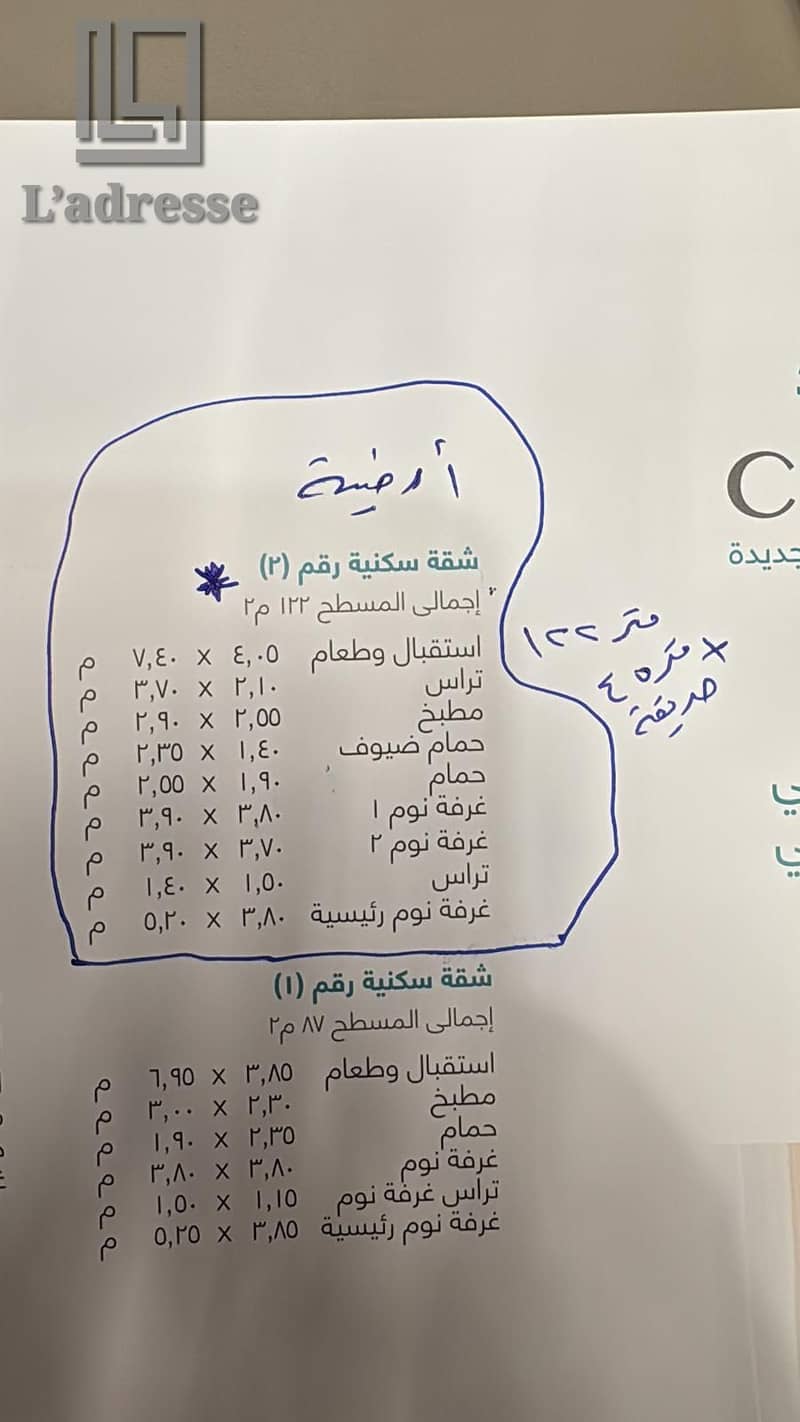 L'adresse
أرضية
C
جديدة
شقة سكنية رقم (٢)
إجمالى المسطح ١٢٢ م٢
١٢٢ متر
x
٤٥ متر
حديقة
استقبال وطعام ٤,٠٥ x ٧,٤٠ م
تراس ٢,١٠ x ٣,٧٠ م
مطبخ ٢,٥٥ x ٢,٩٠ م
حمام ضيوف ١,٤٠ x ٢,٣٥ م
حمام ١,٩٠ x ٢,٥٥ م
غرفة نوم ١ ٣,٨٠ x ٣,٩٠ م
غرفة نوم ٢ ٣,٧٠ x ٣,٩٠ م
تراس ١,٥٠ x ١,٤٠ م
غرفة نوم رئيسية ٣,٨٠ x ٥,٢٠ م
شقة سكنية رقم (١)
إجمالى المسطح ٨٧ م٢
استقبال وطعام ٣,٨٥ x ٦,٩٥ م
مطبخ ٢,٣٠ x ٣,٠٠ م
حمام ٢,٣٥ x ١,٩٠ م
غرفة نوم ٣,٨٠ x ٣,٨٠ م
تراس غرفة نوم ١,١٥ x ١,٥٠ م
غرفة نوم رئيسية ٣,٨٥ x ٥,٢٥ م